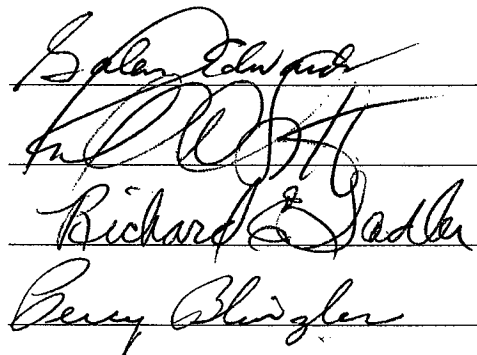 Galen Edwards
Richard E Sadler
Percy Blingler